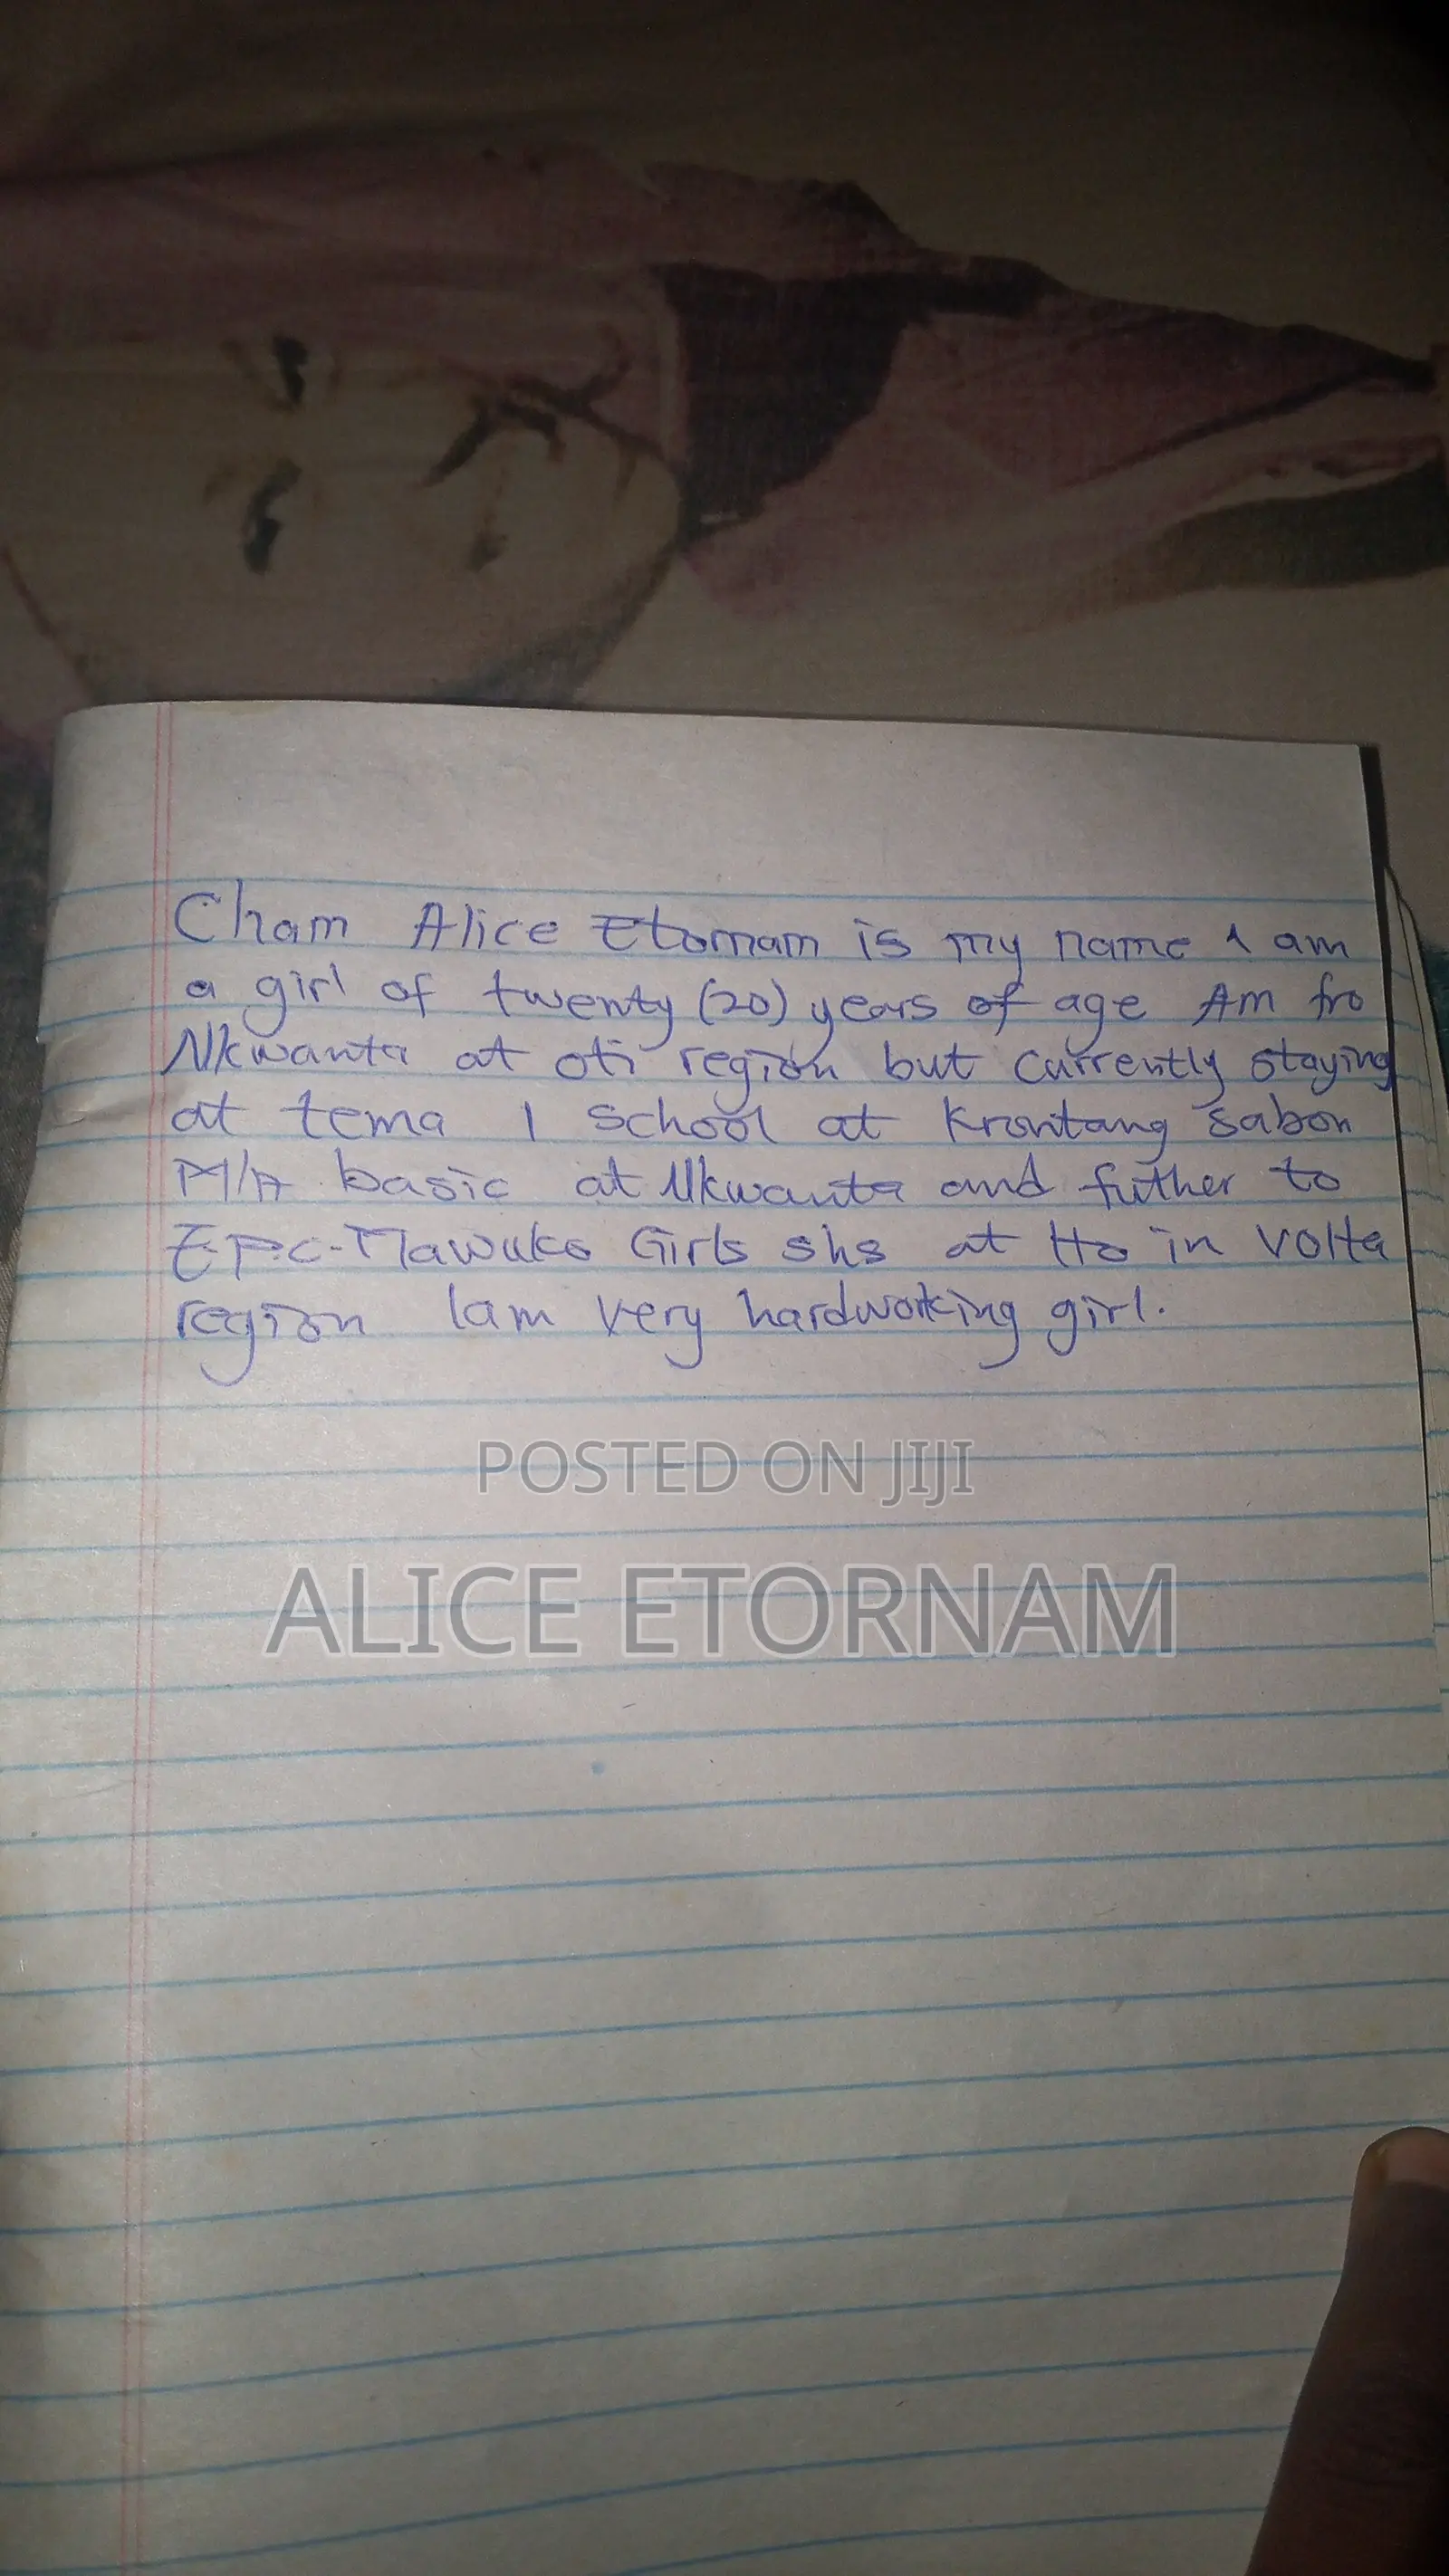 Cham Alice Etornam is my name I am
a girl of twenty (20) years of age Am fro
Nkwanta at oti region but currently staying
at tema I school at Krontang Sabon
M/A basic at Nkwanta and futher to
E.P.C-Mawuko Girls shs at Ho in Volta
region Iam very hardworking girl.
POSTED ON JIJI
ALICE ETORNAM